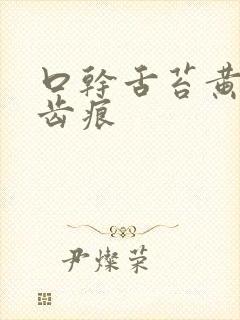 口幹舌苔黄
齿痕
尹燦荣